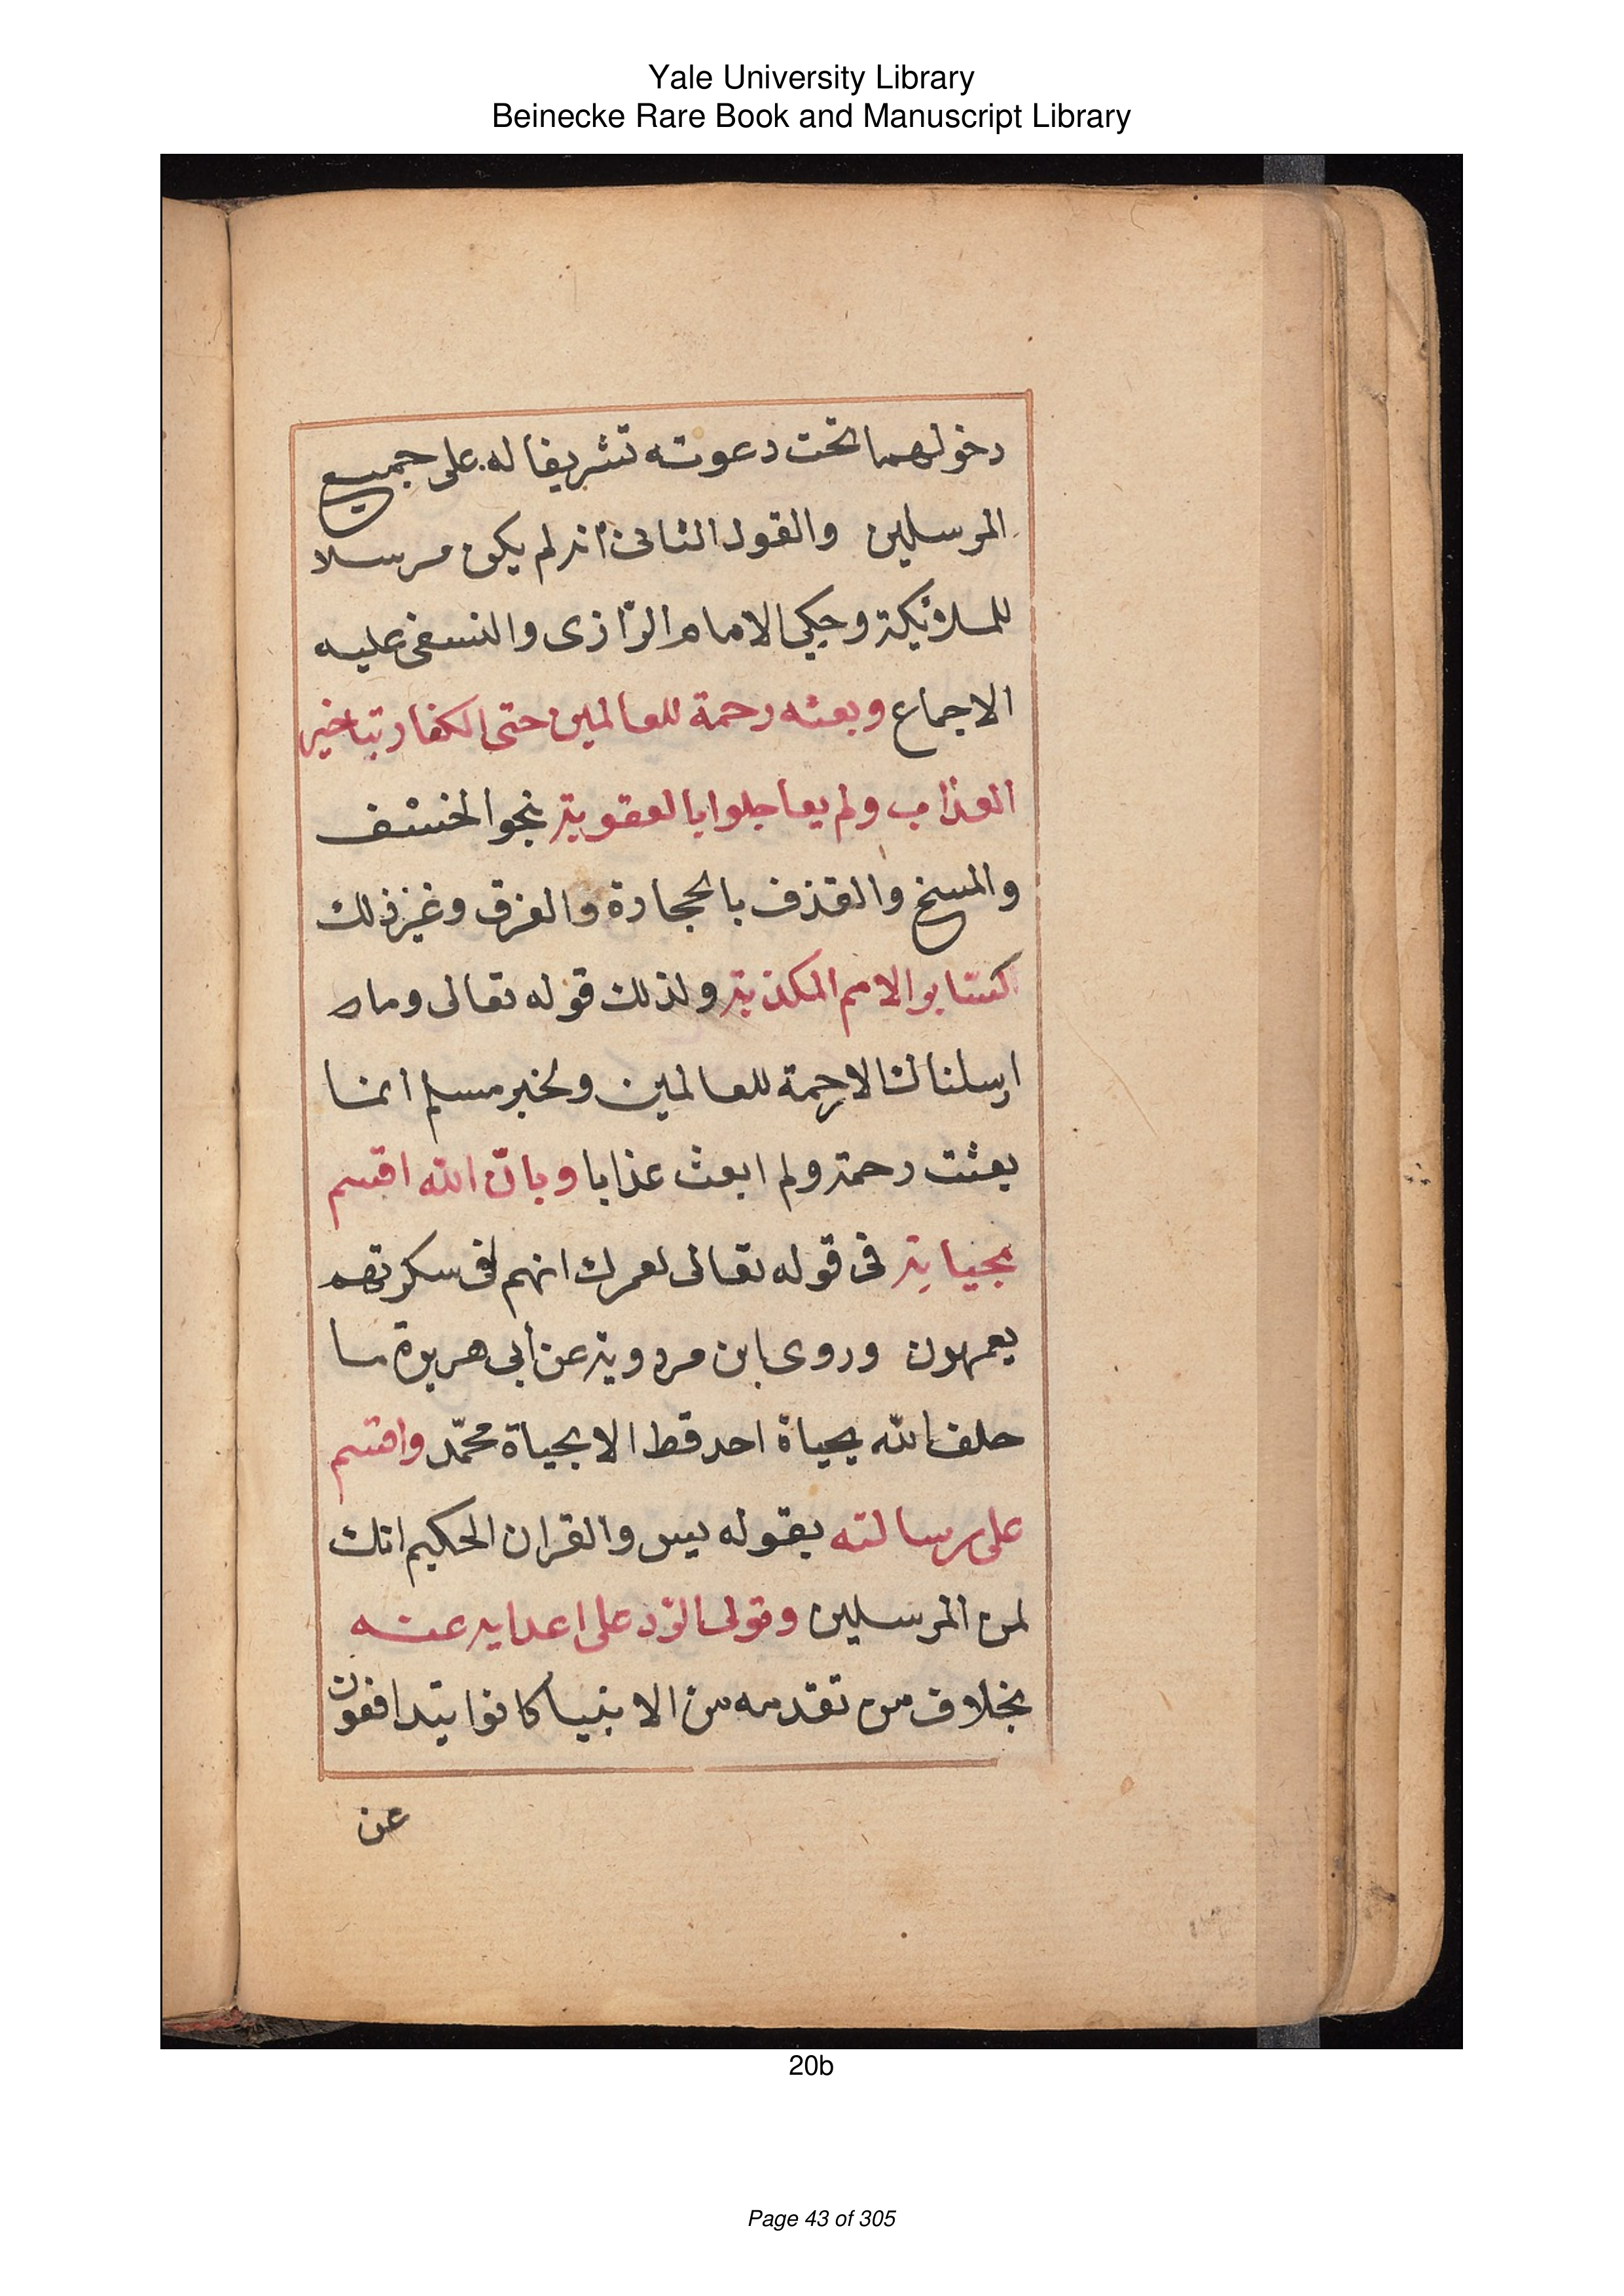 Yale University Library
Beinecke Rare Book and Manuscript Library
دخولهما تحت دعوته تشريفا له على جميع
المرسلين والقول الثانى أنه لم يكن مرسلا
للملائكة وحكى الامام الرّازى والنسفى عليه
الاجماع وبعثه رحمة للعالمين حتى الكفار بتاخير
العذاب ولم يعاجلوا بالعقوبة نحو الخسف
والمسخ والقذف بالحجارة والغرق وغير ذلك
كسايرالامم المكذبة ولذلك قوله تعالى وما
ارسلناك الا رحمة للعالمين ولخبر مسلم انما
بعثت رحمة ولم ابعث عذابا وبانّ الله اقسم
بحياته فى قوله تعالى لعمرك انهم لفى سكرتهم
يعمهون وروى ابن مردويه عن أبى هريرة ما
حلف الله بحياة احد قط الا بحياة محمّد واقسم
على رسالته بقوله يس والقران الحكيم انك
لمن المرسلين وتولى الرّد على اعدايه عنه
بخلاف من تقدمه من الانبيا كانوا يتدافعون
عن
20b
Page 43 of 305